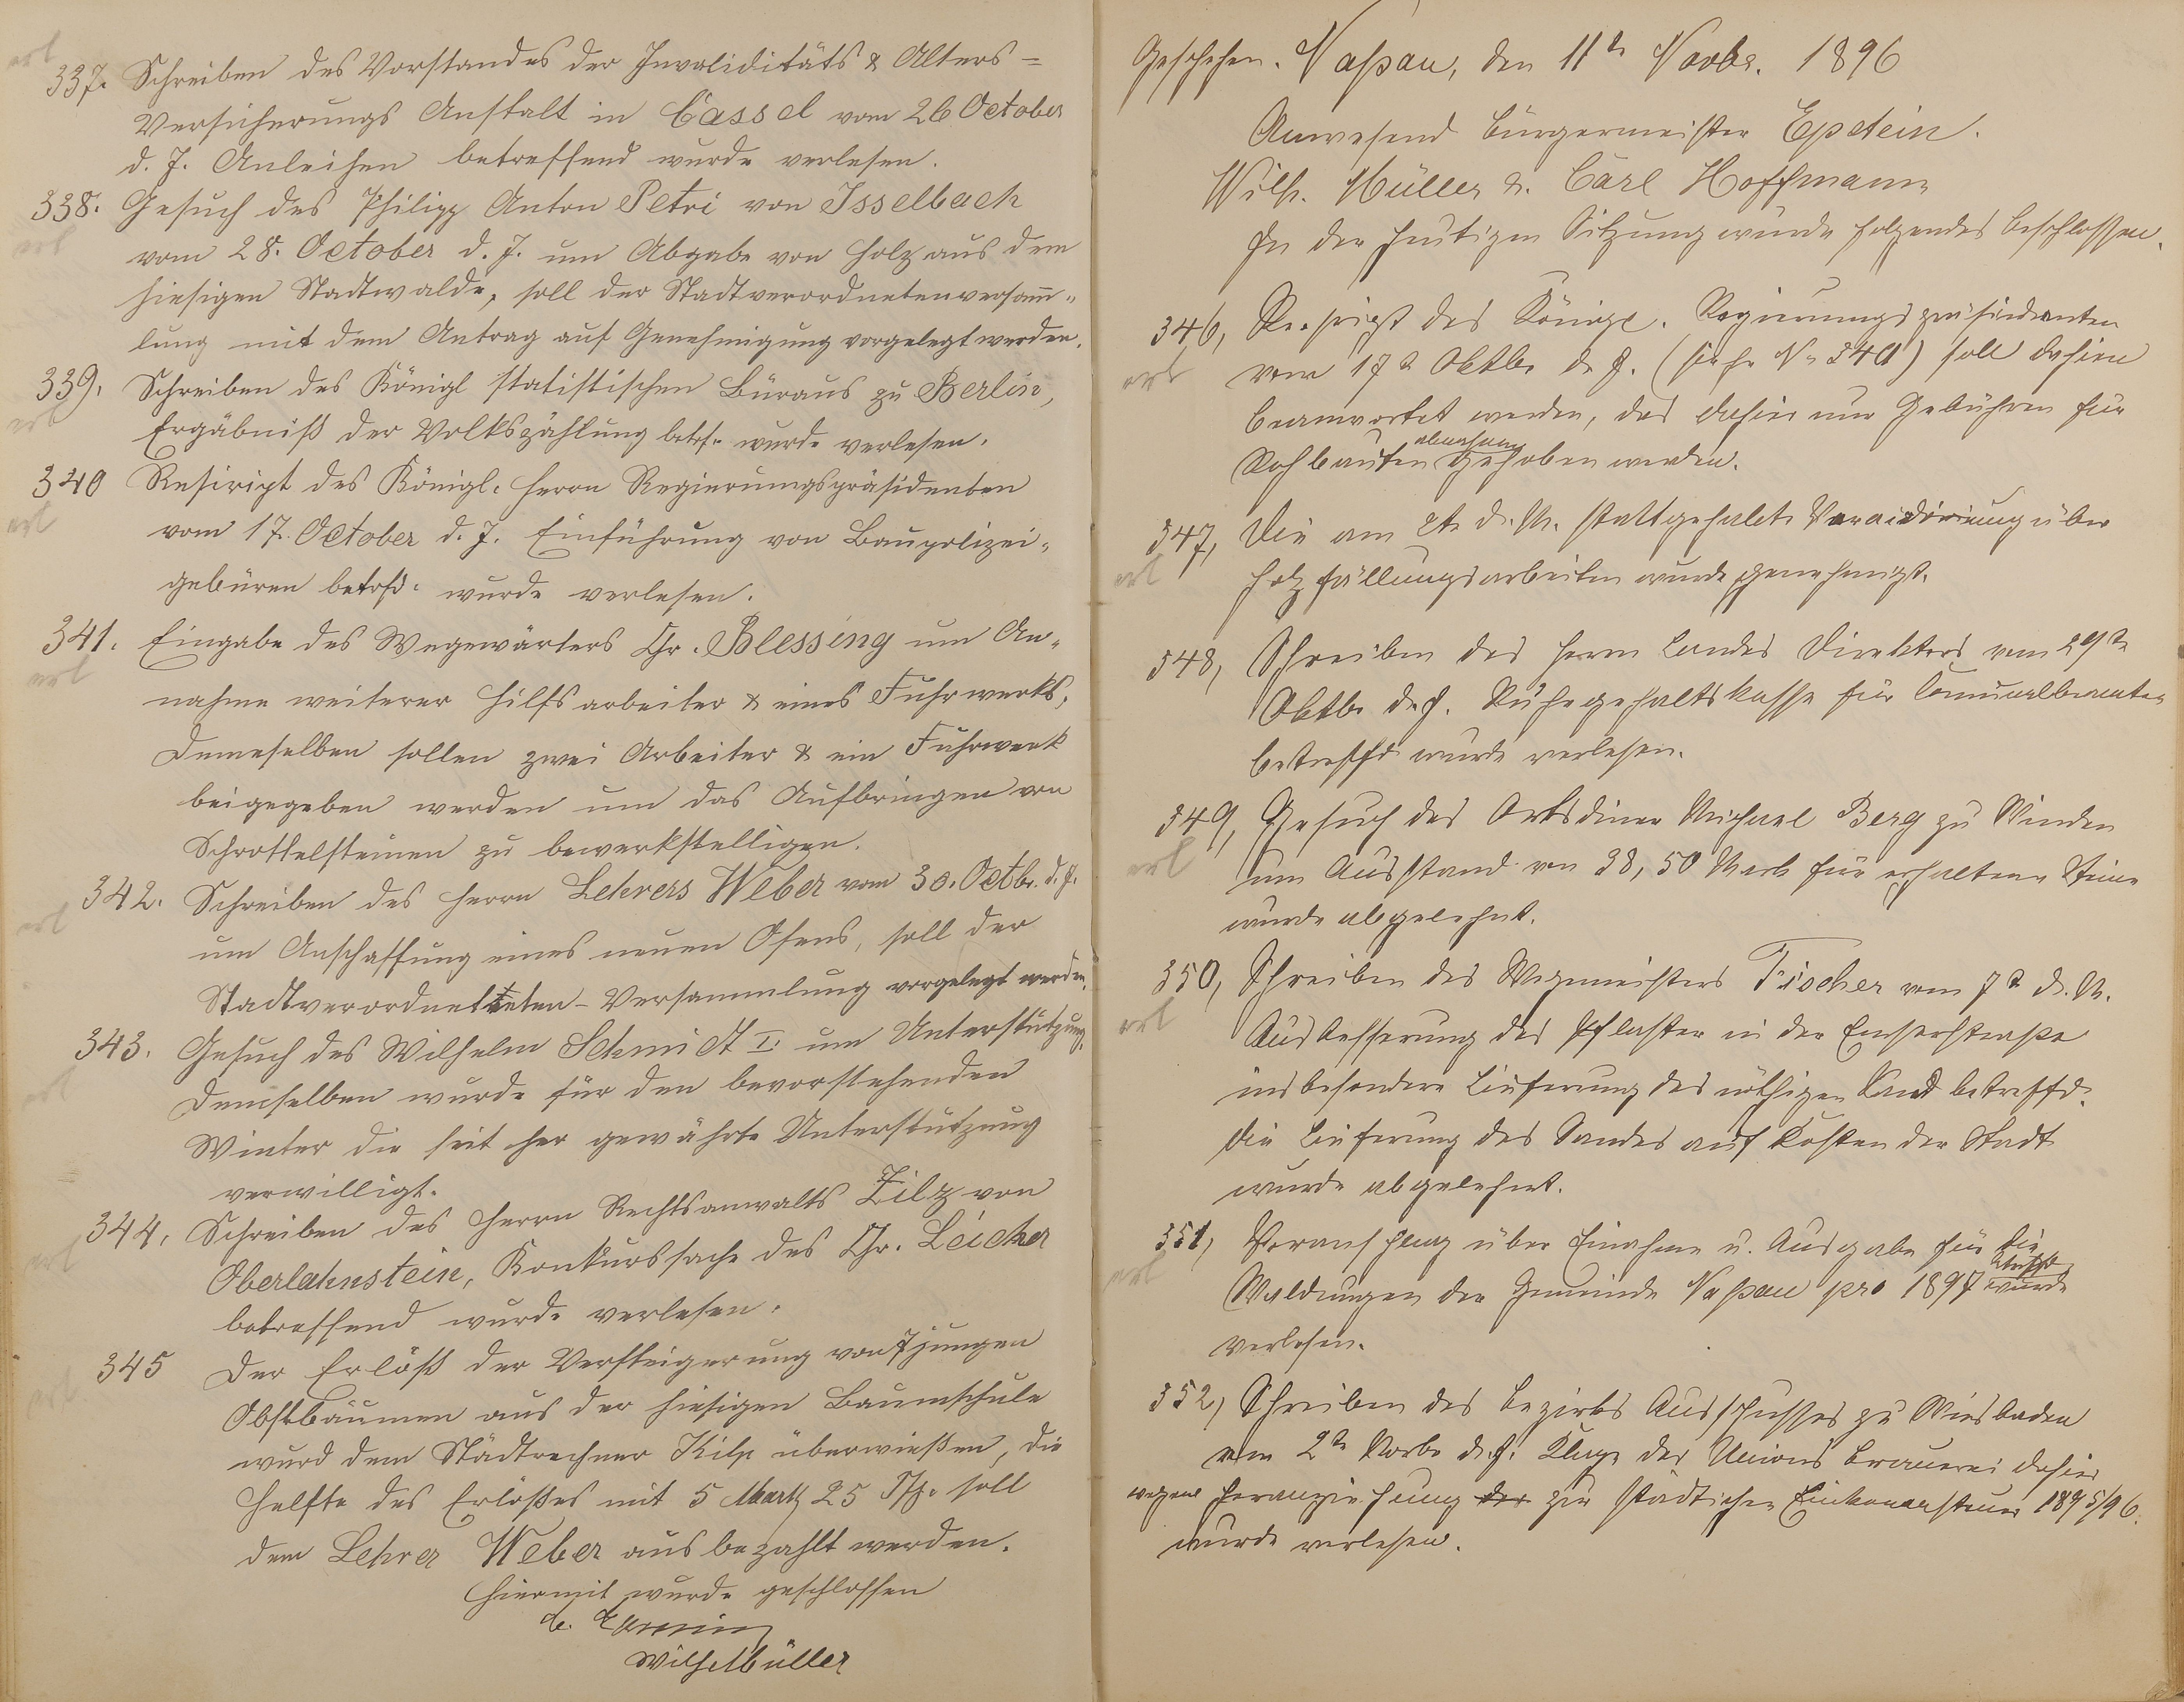 337. Schreiben des Vorstandes der Invaliditäts & Alters =
erl
Versicherungs Anstalt in Cassel vom 26 October
d. J. Anleihen betreffend wurde verlesen.
338. Gesuch des Philipp Anton Petri von Isselbach
erl
vom 28. October d. J. um Abgabe von Holz aus dem
hiesigen Stadtwalde, soll der Stadtverordnetenversam̅-
lung mit dem Antrag auf Genehmigung vorgelegt werden.
339. Schreiben des Königl statistischen Büraus zu Berlin,
erl
Ergäbniß der Volkszählung betrf. wurde verlesen.
340 Resiript des Königl. Herrn Regierungspräsidenten
erl
vom 17. October d. J. Einführung von Baupolizei-
gebüren betrfd. wurde verlesen.
341. Eingabe des Wegewärters Chr. Blessing um An-
erl
nahme weiterer Hilfsarbeiter & eines Fuhrwerks,
Demeselben sollen zwei Arbeiter & ein Fuhrwerk
beigegeben werden um das Aufbringen von
Schrottelsteinen zu bewerkstelligen.
342. Schreiben des Herrn Lehrers Weber vom 30. Octbr. d. J.
erl
um Anschaffung eines neuen Ofens, soll der
Stadtverordneteten-Versammlung vorgelegt werden.
343. Gesuch des Wilhelm Schmidt I. um Unterstützung.
erl
Demselben wurde für den bevorstehenden
Winter die seit her gewährte Unterstützung
verwilligt.
344. Schreiben des Herrn Rechtsanwalts Zilz von
erl
Oberlahnstein, Konkurssache des Chr. Leicher
betreffend wurde verlesen.
345 Der Erlöß der Versteigerung von 7 jungen
erl
Obstbäumen aus der hiesigen Baumschule
wurd dem Städtrechner Kilp überwießen, die
Helfte des Erlößes mit 5 Mark 25 Pfg. soll
dem Lehrer Weber ausbezahlt werden.
Hiermit wurde geschlossen
Wilh Müller
Geschehen. Naßau, den 11t Novbr. 1896
Anwesend Bürgermeister Epstein.
Wilh. Müller u. Carl Hoffmann
In der heutigen Sitzung wurde folgendes beschlossen.
346, Reskript des Königl. Regierungspräsidenten
erl
vom 17t Oktbr d. J. (siehe No 340) soll dahin
beanwortet werden, das dahier nur Gebühren für
Rohbauten abnahmen gehoben werden.
347, Die am d. M. stattgehabte Veraidirung über
erl
Holzfällungsarbeiten wurde genehmigt.
348, Schreiben des Herrn Landes Direktors vom 29te
Oktbr d. J. Ruhegehaltskasse für Comunalbeamte
betreffd wurde verlesen.
349, Gesuch des Ortsdiener Michael Berg zu Winden
erl
um Ausstand von 38,50 Mark für erhaltene Steine
wurde abgelehnt.
350, Schreiben des Wegmeisters Fischer vom 7t d. M.
erl
Ausbesserung des Pflaster in der Emserstraße
insbesondere Lieferung des nöthigen Sand betreffd.
Die Lieferung des Sandes auf Kosten der Stadt
wurde abgelehnt.
351, Voranschlag über Einahme u. Ausgabe für die
erl
Waldungen der Gemeinde Naßau pro 1897 wurde
verlesen.
352, Schreiben des Bezirks Ausschusses zu Wiesbaden
vom 2te Novbr d. J. Klage der Unions Brauerei dahier
wegen Heranziehung der zur städtischen Einkomensteuer 1895/96.
wurde verlesen.